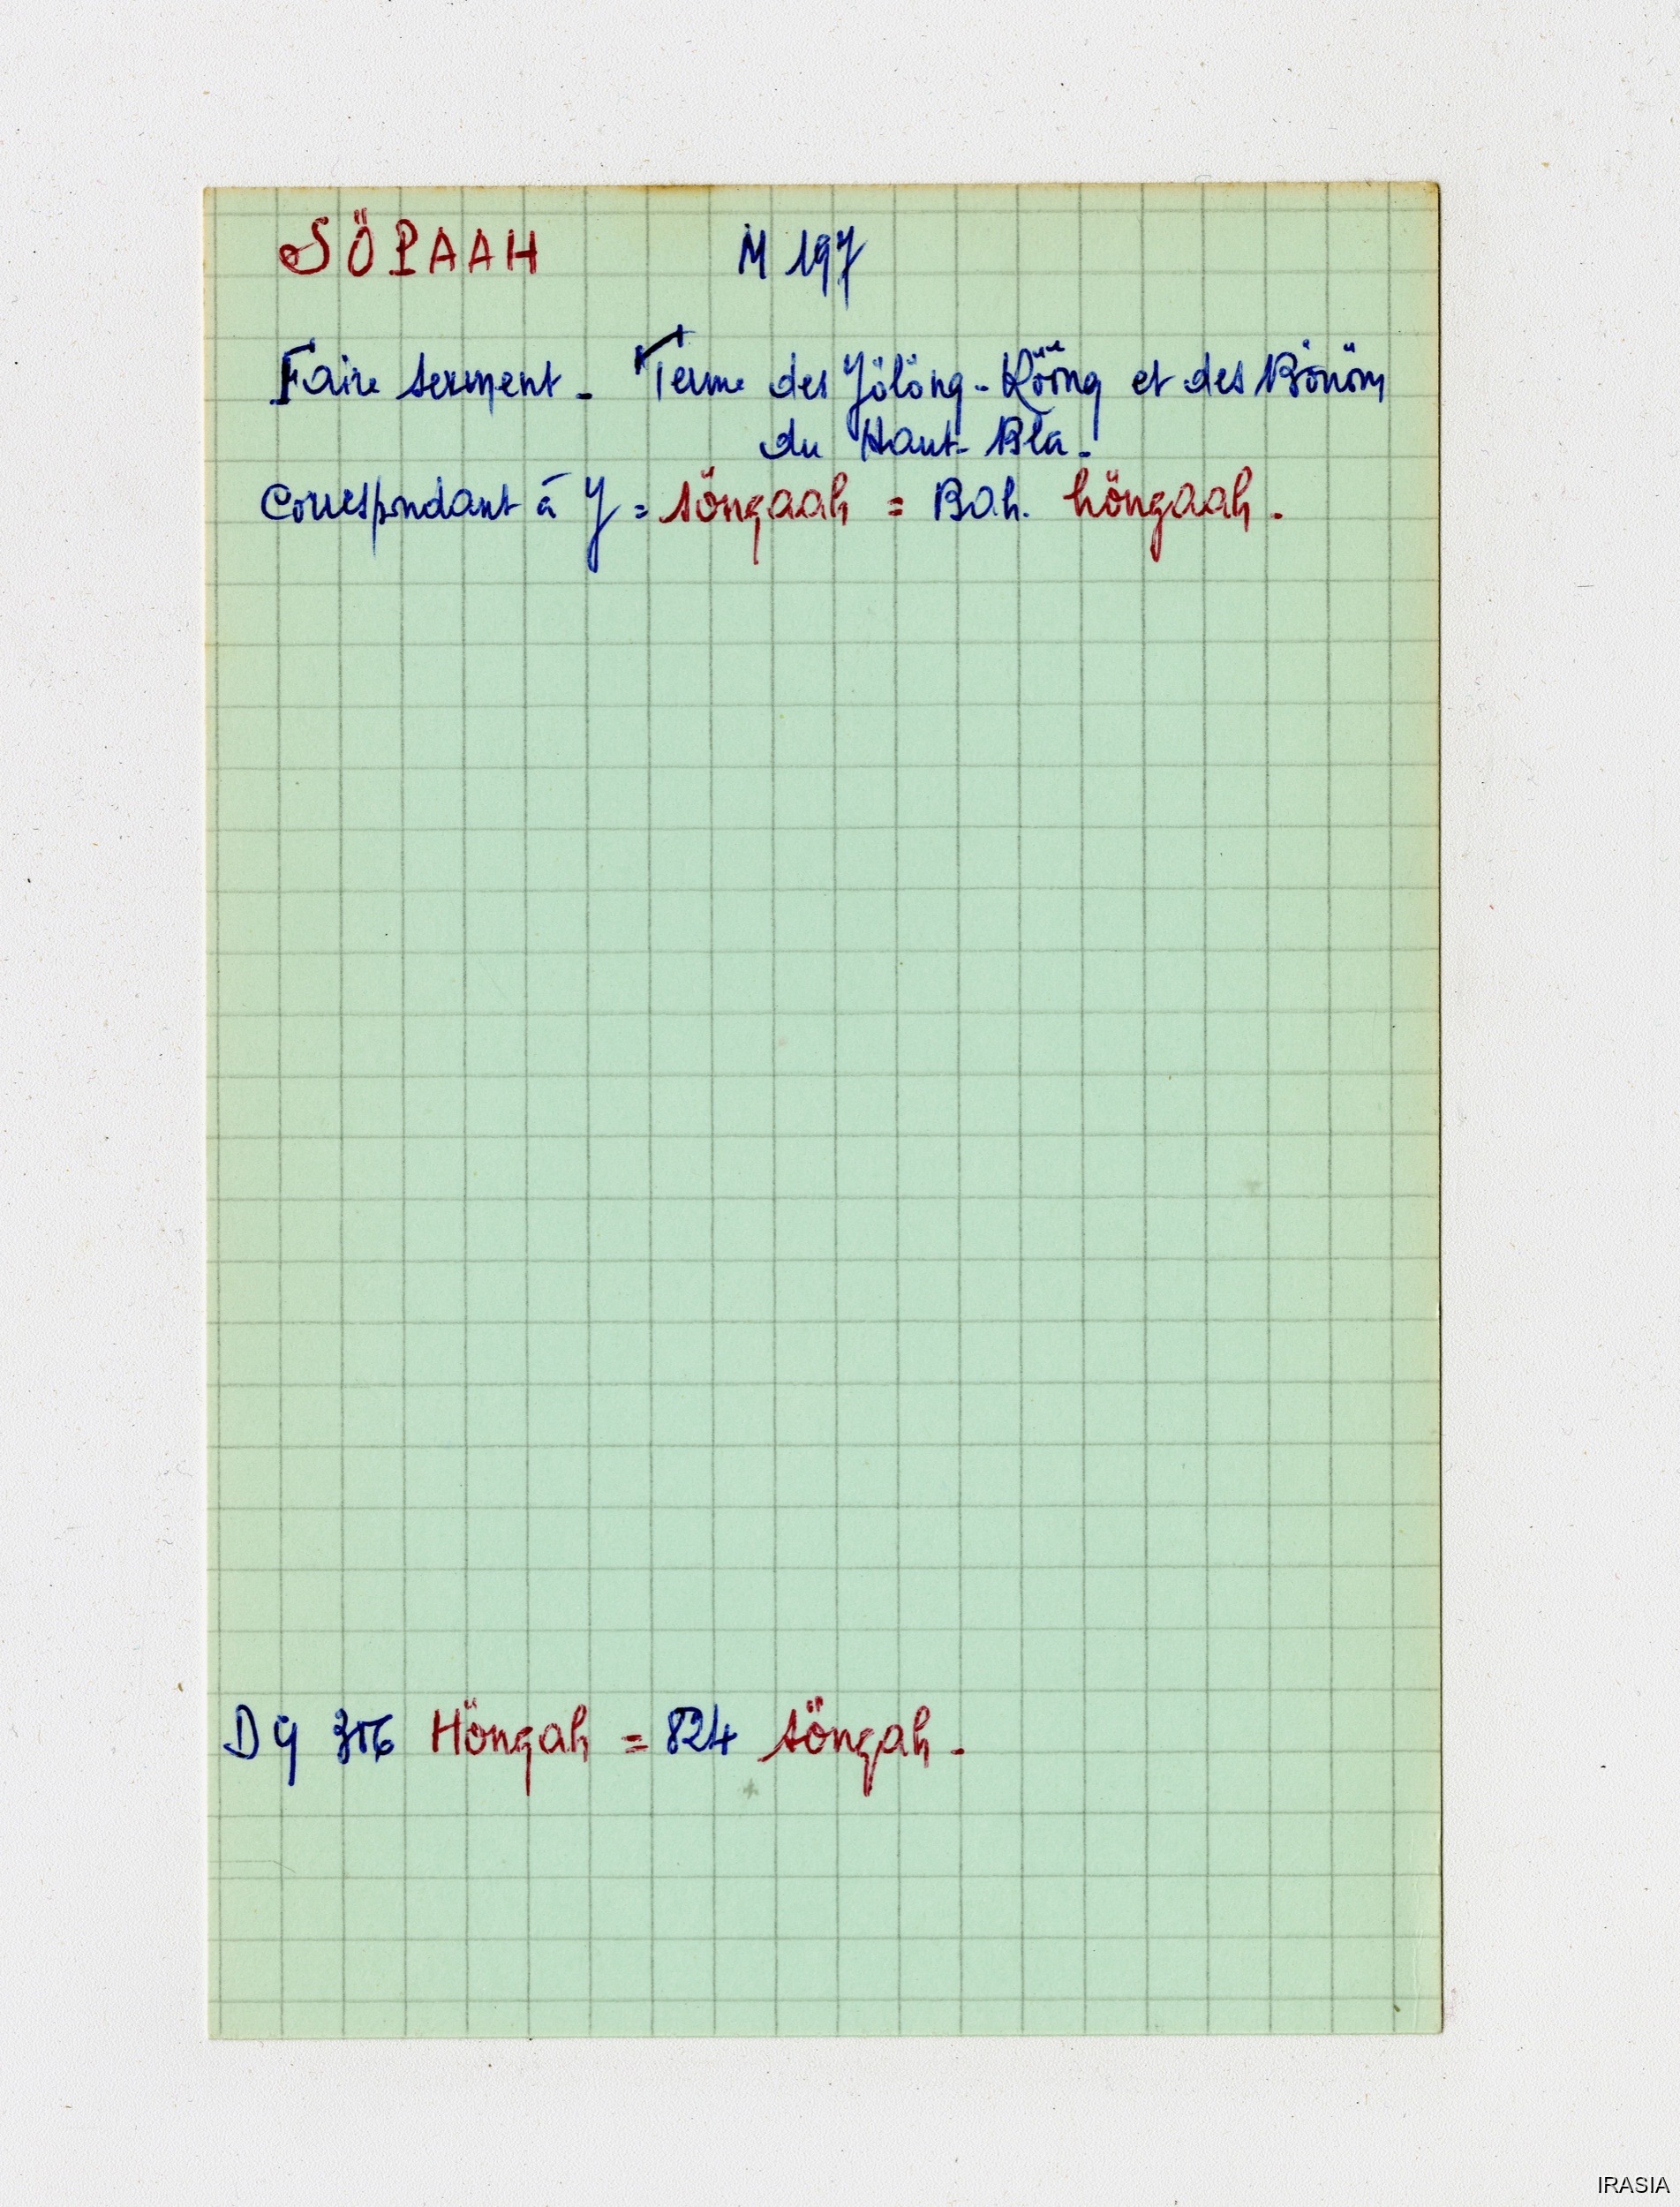 SÖPAAH M 197
Faire serment - Terme des Jölöng-Köông et des Bönöm
du Haut-Bla.
Correspondant à J = söngaah = Bah. höngaah.
DG 316 Höngah = 824 söngah.
IRASIA